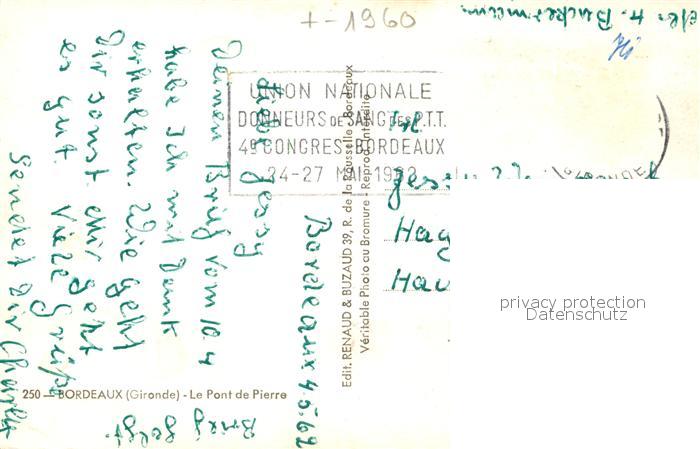 +-1960
Bordeaux 4.5.62
Liebe Jessy
Deinen Brief vom 10.4
habe ich mit Dank
erhalten. Wie geht
Dir sonst. Mir geht
es gut. Viele Grüße
Sendet Dir
Brief folgt.
UNION NATIONALE
DONNEURS DE SANG DES P.T.T.
4e CONGRES BORDEAUX
24-27 MAI
Edit. RENAUD & BUZAUD 39, R. de la Rousselle - Bordeaux
Véritable Photo au Bromure - Reprod. Interdite
Hag
Hau
privacy protection
Datenschutz
250 — BORDEAUX (Gironde) - Le Pont de Pierre